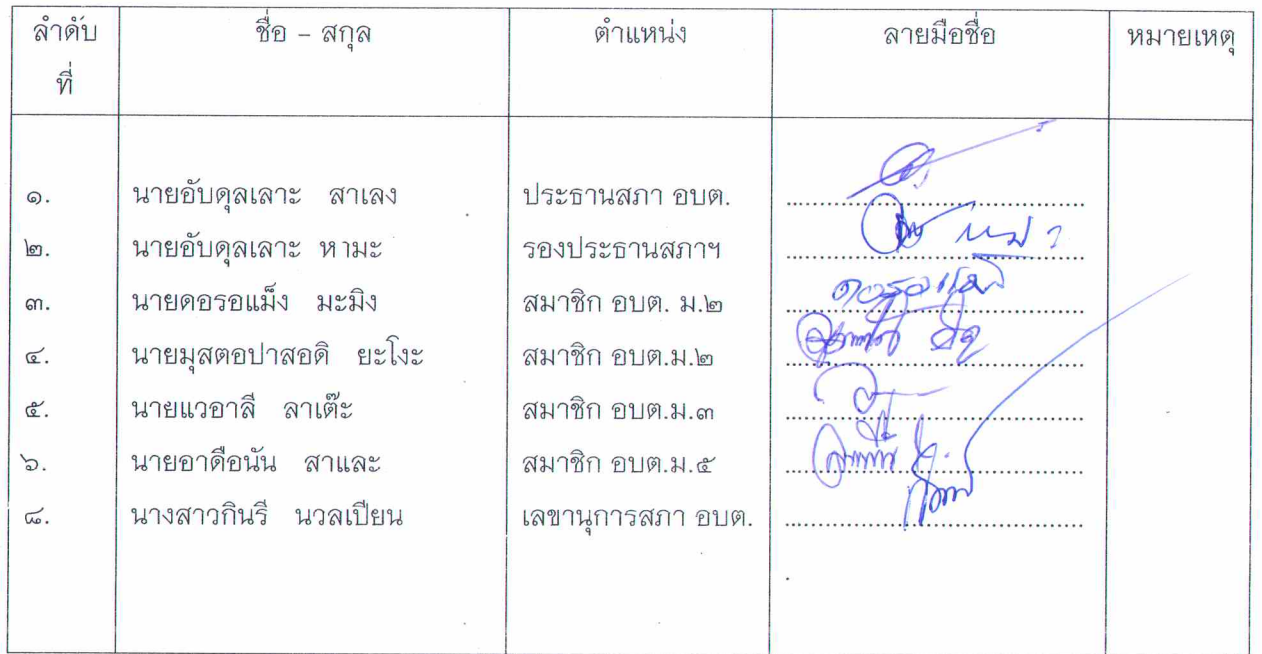 ลำดับ ชื่อ - สกุล ตำแหน่ง ลายมือชื่อ หมายเหตุ
ที่
๑. นายอับดุลเลาะ สาเลง ประธานสภา อบต.
๒. นายอับดุลเลาะ หามะ รองประธานสภาฯ
๓. นายดอรอแม็ง มะมิง สมาชิก อบต. ม.๒ ดอรอแม็ง
๔. นายมุสตอปาสอดิ ยะโงะ สมาชิก อบต.ม.๒
๕. นายแวอาลี ลาเต๊ะ สมาชิก อบต.ม.๓
๖. นายอาดือนัน สาและ สมาชิก อบต.ม.๕
๘. นางสาวกินรี นวลเปียน เลขานุการสภา อบต.